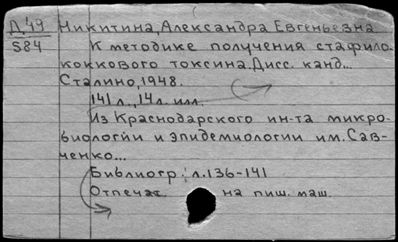 Д 49 Никитина, Александра Евгеньевна
584 К методике получения стафило-
коккового токсина. Дисс. канд...
Сталино, 1948.
141 л., 14 л. илл.
Из Краснодарского ин-та микро-
биологии и эпидемиологии им. Сав-
ченко...
Библиогр.: л. 136-141
Отпечат. на пиш. маш.